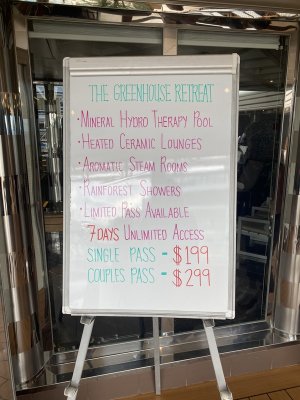 THE GREENHOUSE RETREAT
· MINERAL HYDRO THERAPY POOL
· HEATED CERAMIC LOUNGES
· AROMATIC STEAM ROOMS
· RAINFOREST SHOWERS
· LIMITED PASS AVAILABLE
7 DAYS UNLIMITED ACCESS
SINGLE PASS - $199
COUPLES PASS - $299